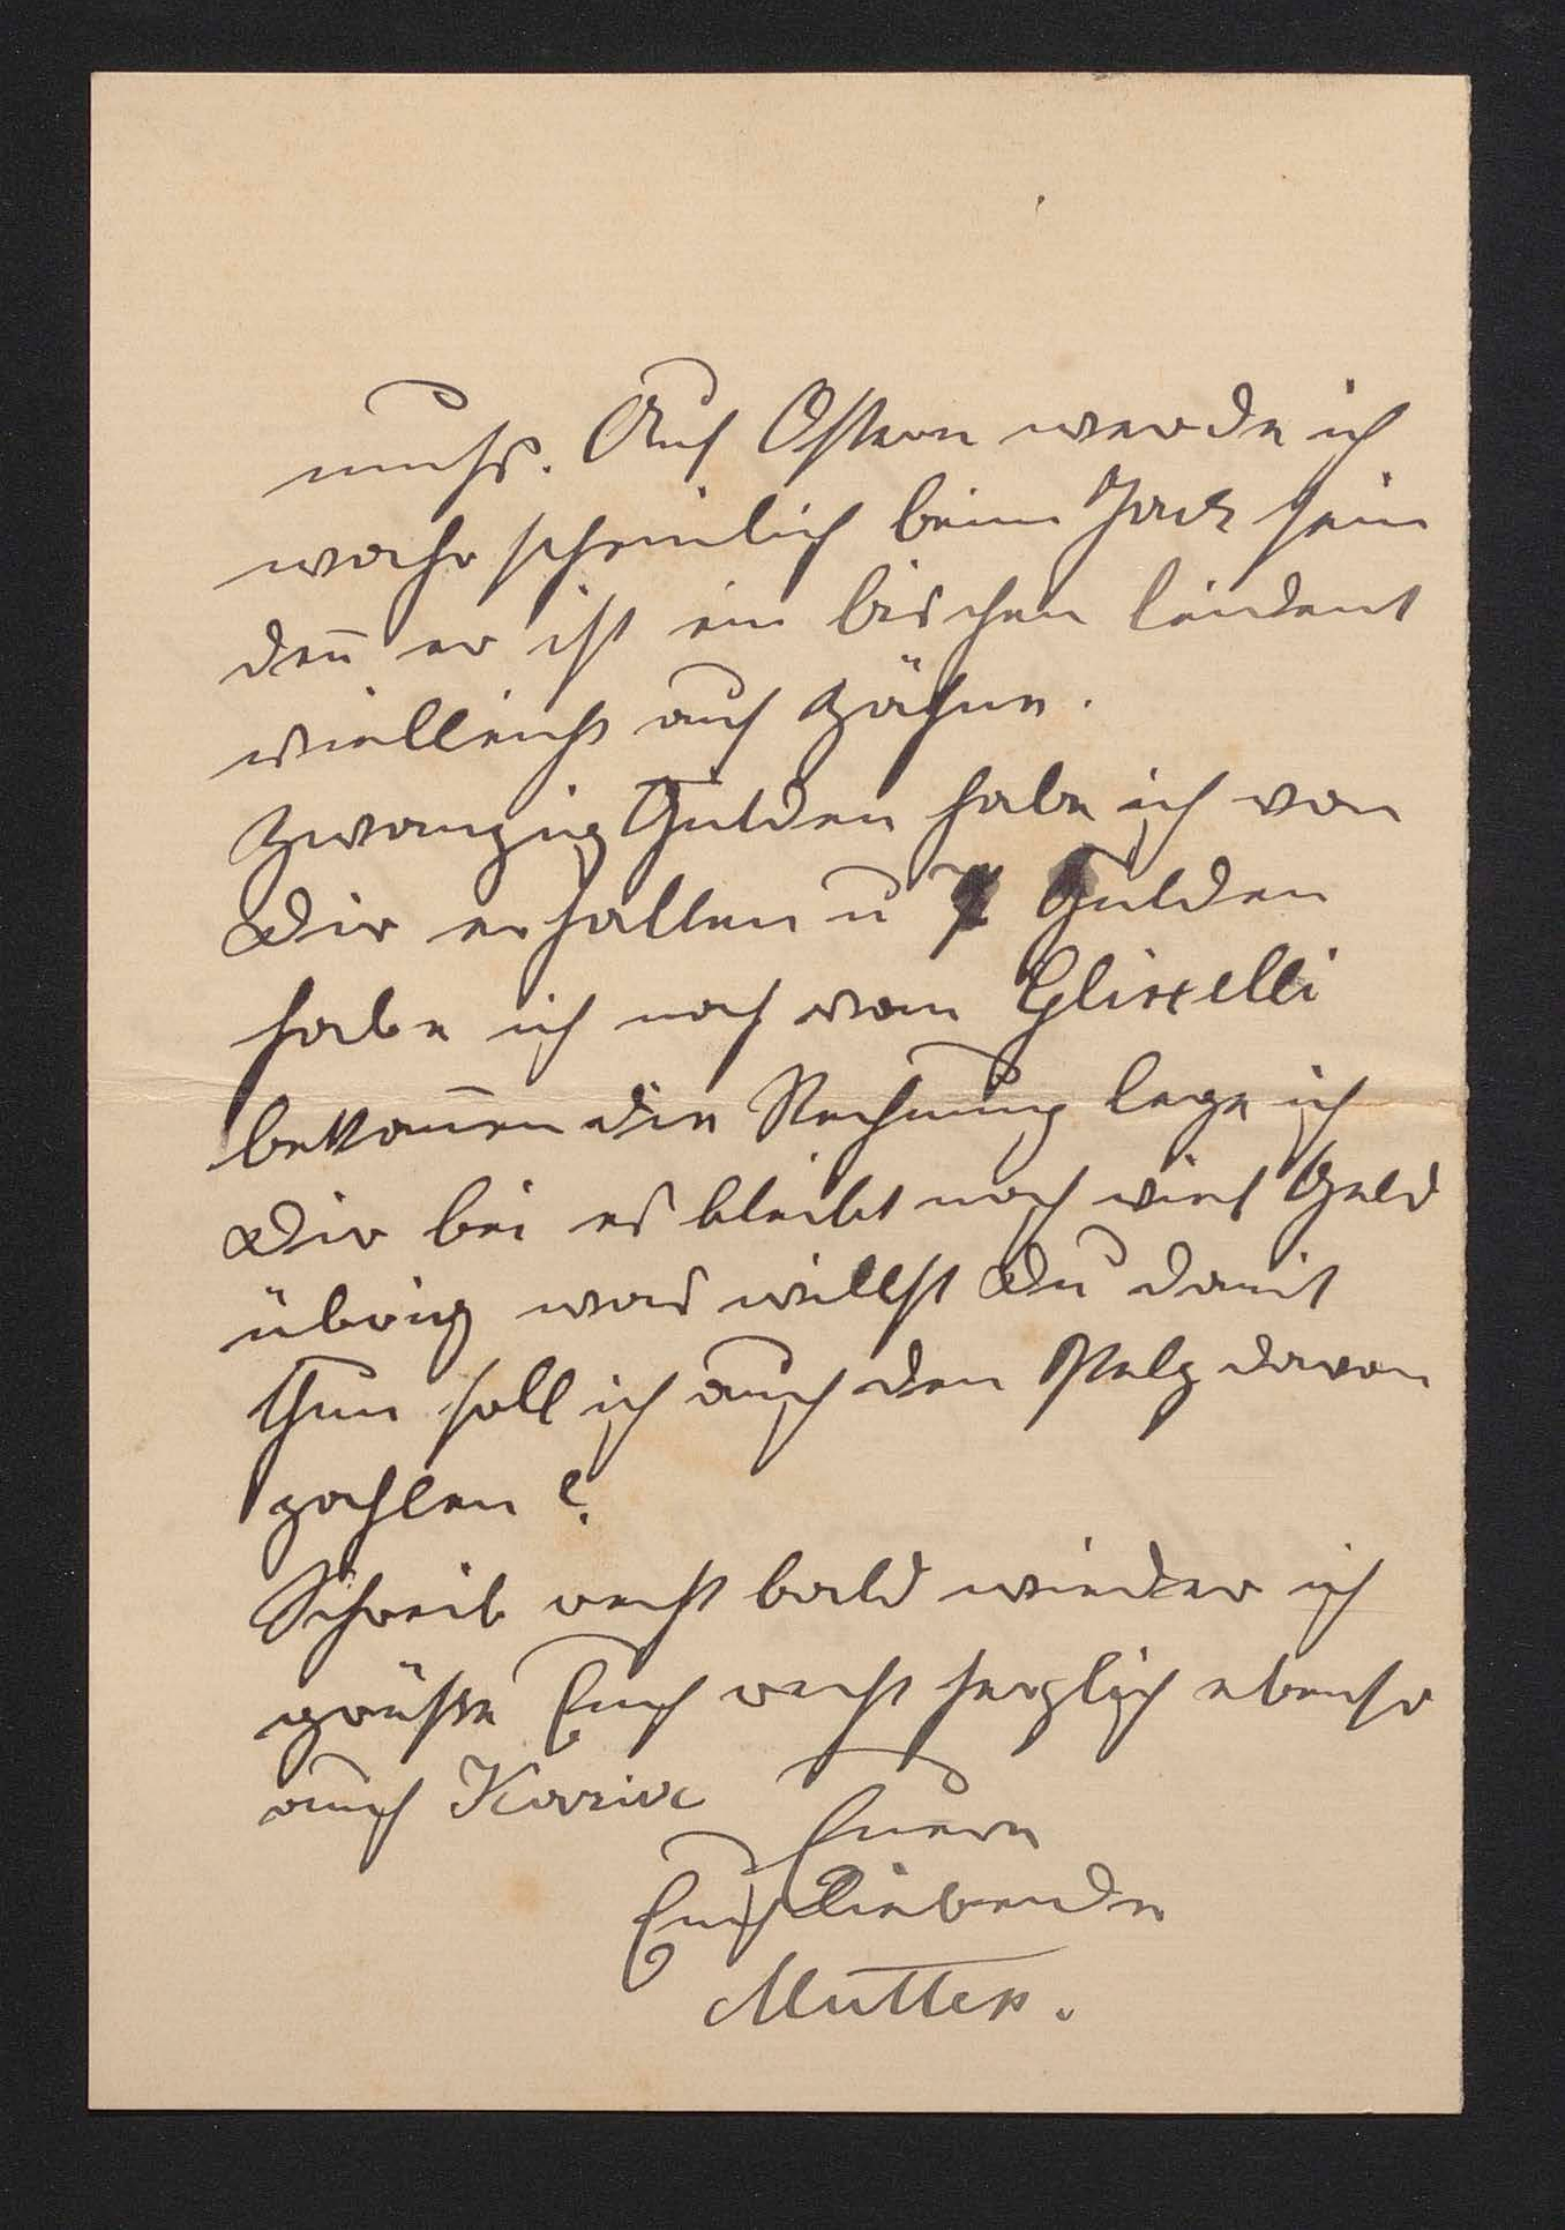 muß. Auf Ostern werde ich
wahrscheinlich beim Jack sein
den̅ er ist ein bischen leident
vielleicht auf Zähne.
Zwanzig Gulden habe ich von
Dir erhalten u 7 Gulden
habe ich noch vom
beko̅men die Rechnung lege ich
Dir bei es bleibt noch viel Geld
übrig was willst Du damit
thun soll ich auch den Pelz davon
zahlen?
Schreib recht bald wieder ich
grüße Euch recht herzlich ebenso
auch
Euere
Euch liebende
Mutter.